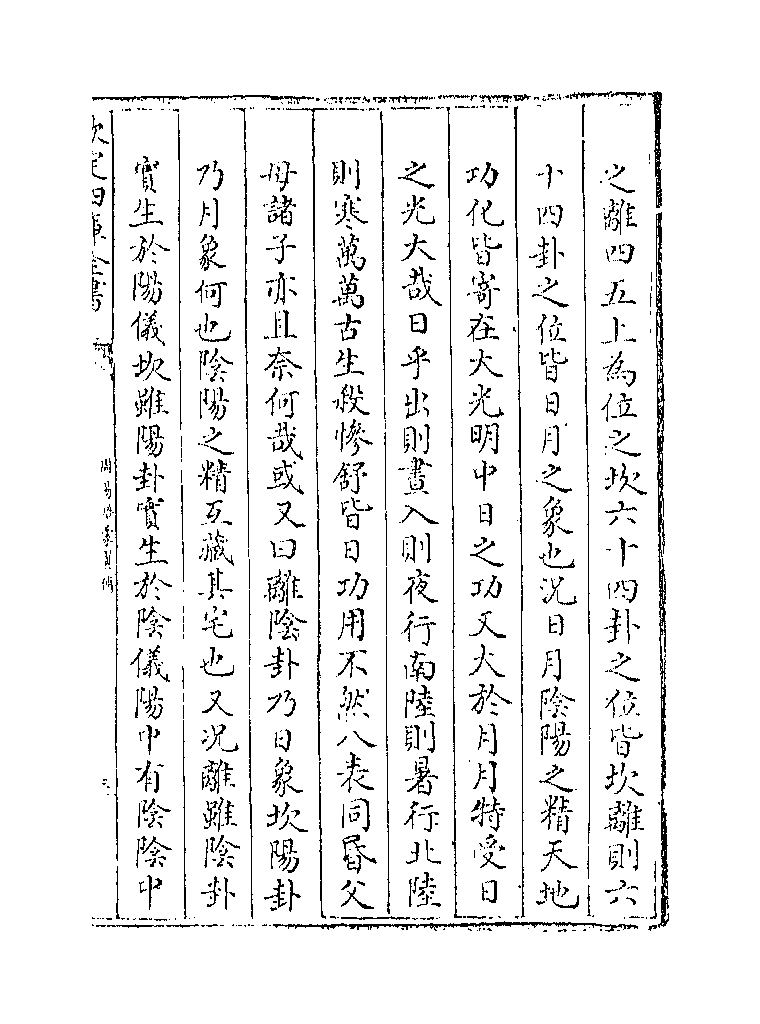 之離四五上為位之坎六十四卦之位皆坎離則六
十四卦之位皆日月之象也况日月陰陽之精天地
功化皆寄在大光明中日之功又大於月月特受日
之光大哉日乎出則晝入則夜行南陸則暑行北陸
則寒萬萬古生殺慘舒皆日功用不然八表同昬父
母諸子亦且奈何哉或又曰離隂卦乃日象坎陽卦
乃月象何也陰陽之精互藏其宅也又况離雖陰卦
實生於陽儀坎雖陽卦實生於陰儀陽中有陰陰中
欽定四庫全書